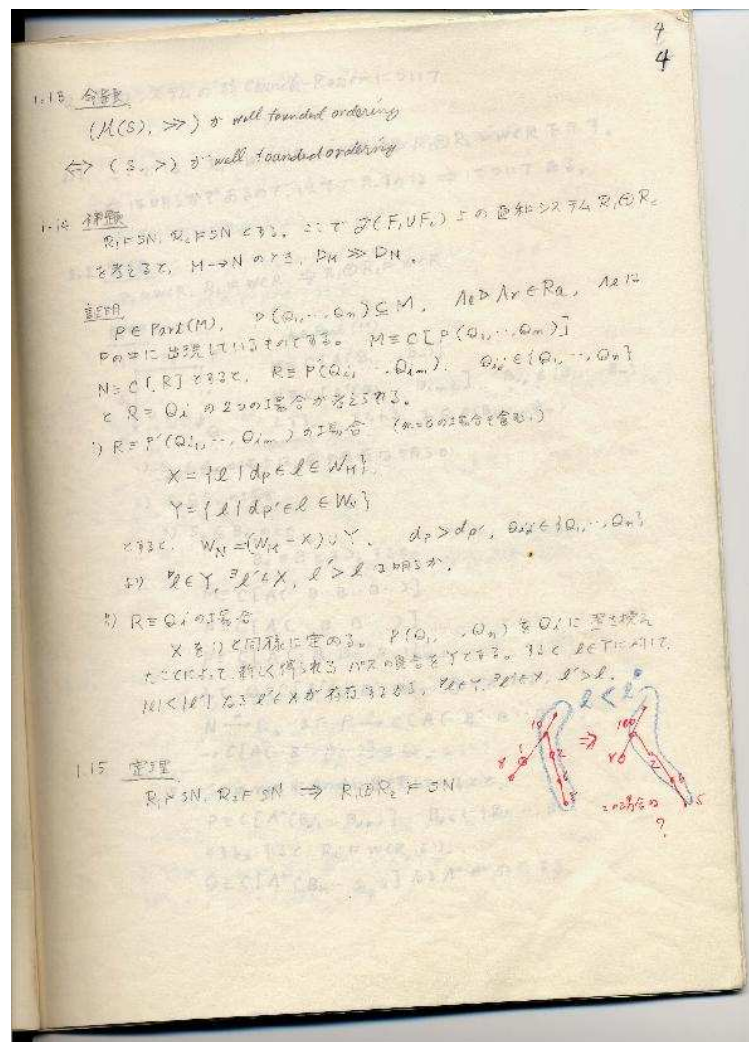 4
4
1.13 命題
(M(S), ≫) が well founded ordering
⇔ (S, >) が well founded ordering
1.14 補題
R₁⊨SN, R₂⊨SN とする. ここで 𝒯(F₁∪F₂) 上の直和システム R₁⊕R₂
を考えると, M→N のとき, D_M ≫ D_N.
証明
P∈Part(M), P(Q₁,…,Qn)⊆M, Λl▷Λr∈Ra, Λlは
Pの中に出現しているものとする. M≡C[P(Q₁,…,Qn)]
N≡C[R] とすると, R≡P'(Qi₁,…,Qim), Qij∈{Q₁,…,Qn}
と R≡Qi の2つの場合が考えられる.
i) R≡P'(Qi₁,…,Qim) の場合 (m=0の場合を含む.)
X={l | dp∈l∈W_M}
Y={l | dp'∈l∈W_N}
とすると, W_N=(W_M-X)∪Y, dp>dp', Qij∈{Q₁,…,Qn}
より ∀l∈Y, ∃l'∈X, l'>l は明らか.
ii) R≡Qi の場合
Xをi)と同様に定める. P(Q₁,…,Qn)をQiに置き換え
たことによって, 新しく得られるパスの集合をYとする. すると l∈Yに対して,
|l|<|l'| なる l'∈X が存在するから, ∀l∈Y, ∃l'∈X, l'>l.
l < l'
10 ⇒ 100
8 1 2
5
この場合は
?
1.15 定理
R₁⊨SN, R₂⊨SN ⇒ R₁⊕R₂⊨SN